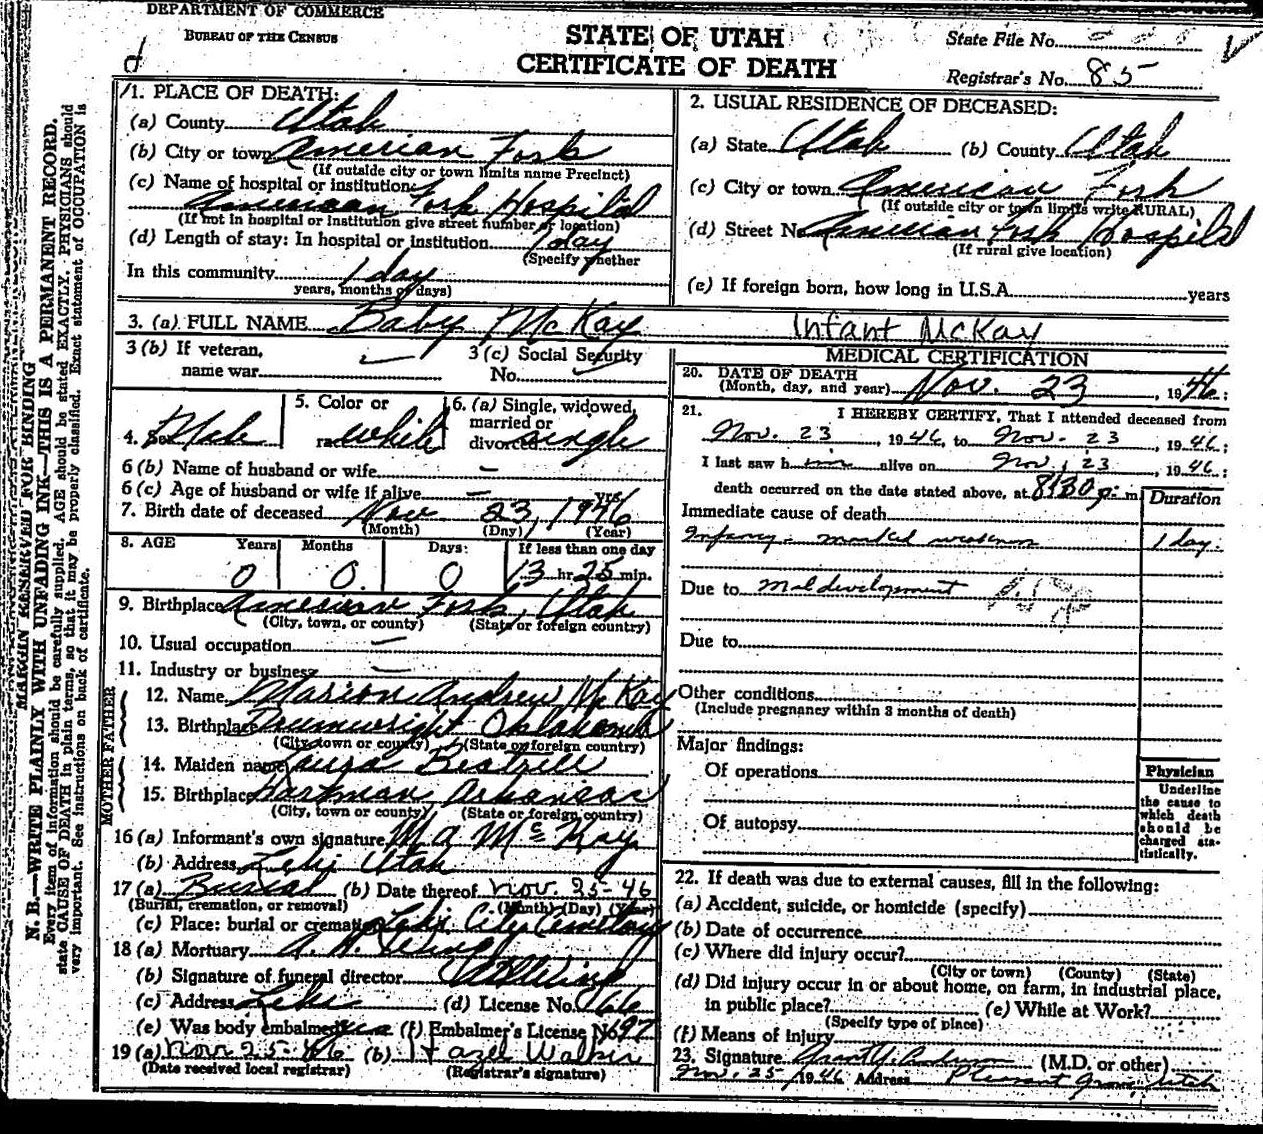 DEPARTMENT OF COMMERCE
BUREAU OF THE CENSUS
d
STATE OF UTAH
CERTIFICATE OF DEATH
State File No.
Registrar's No. 85
MARGIN RESERVED FOR BINDING
N. B.—WRITE PLAINLY WITH UNFADING INK—THIS IS A PERMANENT RECORD.
Every item of information should be carefully supplied. AGE should be stated EXACTLY. PHYSICIANS should
state CAUSE OF DEATH in plain terms, so that it may be properly classified. Exact statement of OCCUPATION is
very important. See instructions on back of certificate.
1. PLACE OF DEATH:
(a) County Utah
(b) City or town American Fork
(If outside city or town limits name Precinct)
(c) Name of hospital or institution:
American Fork Hospital
(If not in hospital or institution give street number or location)
(d) Length of stay: In hospital or institution 1 day
(Specify whether
In this community 1 day
years, months or days)
2. USUAL RESIDENCE OF DECEASED:
(a) State Utah (b) County Utah
(c) City or town American Fork
(If outside city or town limits write RURAL)
(d) Street No. American Fork Hospital
(If rural give location)
(e) If foreign born, how long in U.S.A. years
3. (a) FULL NAME Baby McKay Infant McKay
3 (b) If veteran,
name war
3 (c) Social Security
No.
4. Sex Male
5. Color or
race white
6. (a) Single, widowed,
married or
divorced single
6 (b) Name of husband or wife —
6 (c) Age of husband or wife if alive — yrs.
7. Birth date of deceased Nov 23, 1946
(Month) (Day) (Year)
8. AGE Years Months Days: If less than one day
0 0 0 13 hr. 25 min.
9. Birthplace American Fork, Utah
(City, town, or county) (State or foreign country)
10. Usual occupation —
11. Industry or business —
FATHER
12. Name Marion Andrew McKay
13. Birthplace Drumwright Oklahoma
(City, town or county) (State or foreign country)
MOTHER
14. Maiden name Laura Beatrice
15. Birthplace Hartman Arkansas
(City, town or county) (State or foreign country)
16 (a) Informant's own signature M A McKay
(b) Address Lehi Utah
17 (a) Burial (b) Date thereof Nov. 25-46
(Burial, cremation, or removal) (Month) (Day) (Year)
(c) Place: burial or cremation Lehi City Cemetery
18 (a) Mortuary A. H.
(b) Signature of funeral director
(c) Address Lehi (d) License No. 166
(e) Was body embalmed yes (f) Embalmer's License No. 97
19 (a) Nov 25-46 (b) Hazel Walker
(Date received local registrar) (Registrar's signature)
MEDICAL CERTIFICATION
20. DATE OF DEATH
(Month, day, and year) Nov. 23, 1946:
21. I HEREBY CERTIFY, That I attended deceased from
Nov. 23, 1946, to Nov. 23, 1946:
I last saw him alive on Nov. 23, 1946:
death occurred on the date stated above, at 8:30 p. m.
Duration
Immediate cause of death
marked 1 day.
Due to Maldevelopment
Due to
Other conditions
(Include pregnancy within 3 months of death)
Major findings:
Of operations
Of autopsy
Physician
Underline
the cause to
which death
should be
charged sta-
tistically.
22. If death was due to external causes, fill in the following:
(a) Accident, suicide, or homicide (specify)
(b) Date of occurrence
(c) Where did injury occur?
(City or town) (County) (State)
(d) Did injury occur in or about home, on farm, in industrial place,
in public place? (e) While at Work?
(Specify type of place)
(f) Means of injury
23. Signature (M.D. or other)
Nov. 25, 1946 Address Pleasant Grove, Utah